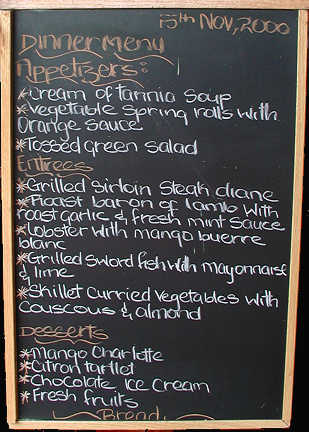 15th Nov, 2000
Dinner Menu
Appetizers:
*Cream of tannia soup
*Vegetable spring rolls with
Orange sauce
*Tossed green salad
Entrees
*Grilled Sirloin Steak diane
*Roast baron of lamb with
roast garlic & fresh mint Sauce
*lobster with mango buerre
blanc
*Grilled Sword fish with mayonnaise
& lime
*Skillet Curried Vegetables with
Couscous & almond
Desserts
*Mango Charlotte
*Citron tartlet
*Chocolate Ice Cream
*Fresh fruits
Bread